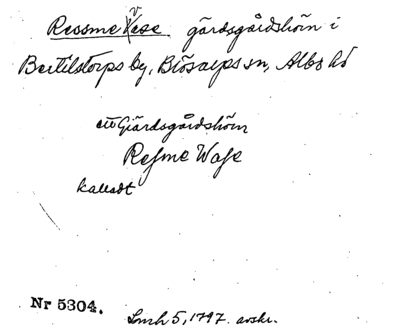 Ressme Vase gärdsgårdshörn i
Bertilstorps by, Biösarps sn, Albo hd
ett Giärdsgårdshörn
Resme Wase
kalladt
Nr 5304.
Lmh 5, 1797. avskr.